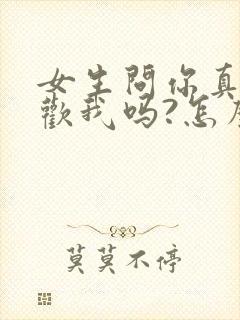 女生問你真
歡我吗?怎
莫莫不停